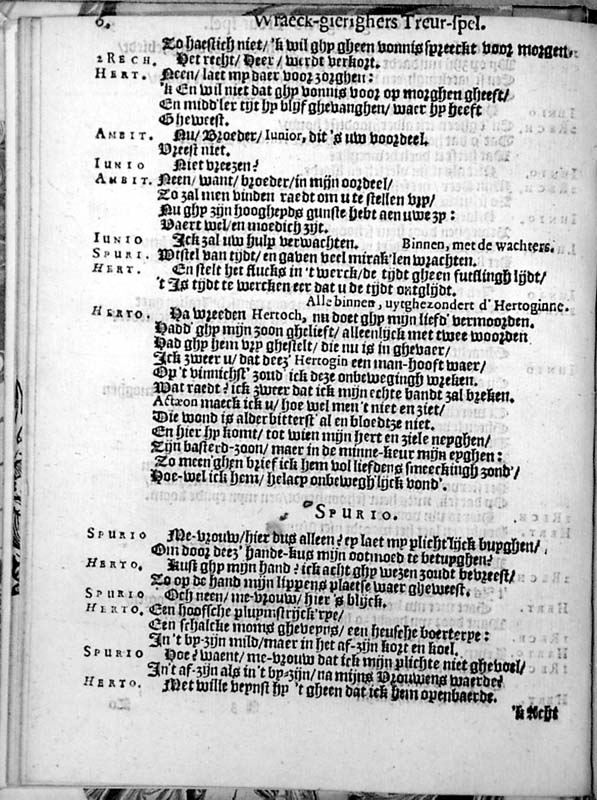 6. Wraeck-gierighers Treur-spel.
To haestich niet/ 'k wil ghy gheen vonnis spreeckt voor morgen.
2 RECH. Het recht/ Heer/ werdt verkort.
HERT. Neen/ laet my daer voor zorghen:
'k En wil niet dat ghy vonnis voor op morghen gheeft/
En midd'ler tijt hy blijf ghevanghen/ waer hy heeft
Gheweest.
AMBIT. Nu/ Broeder/ Iunior, dit 's uw voordeel.
Vreest niet.
IUNIO Niet vreezen?
AMBIT. Neen/ want/ broeder/ in mijn oordeel/
To zal men vinden raedt om u te stellen vry/
Nu ghy zijn hoogheyds gunste hebt aen uwe zy:
Vaert wel/ en moedich zijt.
IUNIO Ick zal uw hulp verwachten. Binnen, met de wachters.
SPURI. Wistel van tijdt/ en gaven veel mirak'len wrachten.
HERT. En stelt het flucks in 't werck/ de tijdt gheen futslingh lijdt/
't Is tijdt te wercken eer dat u de tijdt ontglijdt.
Alle binnen, uytghezondert d' Hertoginne.
HERTO. Ha wreeden Hertoch, nu doet ghy mijn liefd' vermoorden.
Hadd' ghy mijn zoon ghelieft/ alleenlijck met twee woorden
Had ghy hem vry ghestelt/ die nu is in ghevaer/
Ick zweer u/ dat deez' Hertogin een man-hooft waer/
Op 't vinnichst' zoud' ick deze onbewegingh wreken.
Wat raedt? ick zweer dat ick mijn echte bandt zal breken.
Actæon maeck ick u/ hoe wel men 't niet en ziet/
Die wond is alder bitterst' al en bloedtze niet.
En hier hy komt/ tot wien mijn hert en ziele neyghen/
Zijn basterd-zoon/ maer in de minne-keur mijn eyghen:
Zo meen'ghen brief ick hem vol liefdens smeeckingh zond'/
Hoe-wel ick hem/ helacy onbewegh'lijck vond'.
SPURIO.
SPURIO Me-vrouw/ hier dus alleen? ey laet my plicht'lijck buyghen/
Om door deez' hande-kus mijn ootmoed te betuyghen?
HERTO. Kust ghy mijn hand? ick acht ghy wezen zoudt bevreest/
Zo op de hand mijn lippens plaetse waer gheweest.
SPURIO Och neen/ me-vrouw/ hier 's blijck.
HERTO. Een hooffsche pluymstrijck'rye/
Een schalcke moms gheveyns/ een heusche boerterye:
In 't by-zijn mild/ maer in het af-zijn kort en koel.
SPURIO Hoe? waent/ me-vrouw dat ick mijn plichte niet ghevoel/
In 't af-zijn als in 't by-zijn/ na mijns Vrouwens waerde?
HERTO. Met wille veynst hy 't gheen dat ick hem openbaerde.
'k Acht